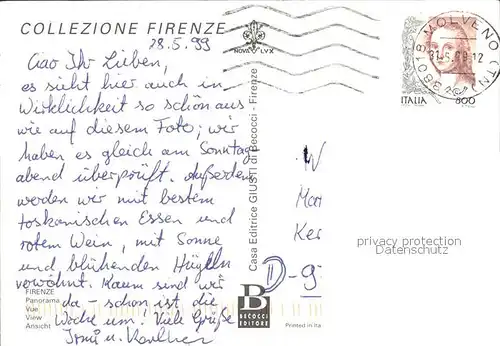 COLLEZIONE FIRENZE
28.5.99
NOVA LVX
38018 MOLVENO (TN)
ITALIA 800
Ciao Ihr Lieben,
es sieht hier auch in
Wirklichkeit so schön aus
wie auf diesem Foto; wir
haben es gleich am Sonntag
abend überprüft. Außerdem
werden wir mit bestem
toskanischen Essen und
rotem Wein, mit Sonne
und blühenden Hügeln
verwöhnt. Kaum sind wir
da - schon ist die
Woche um. Viele Grüße
Irmi u.
FIRENZE
Panorama
Vue
View
Ansicht
Casa Editrice GIUSTI di Becocci - Firenze
B
BECOCCI
EDITORE
W
Mar
Ker
D-9
privacy protection
Datenschutz
Printed in Ita